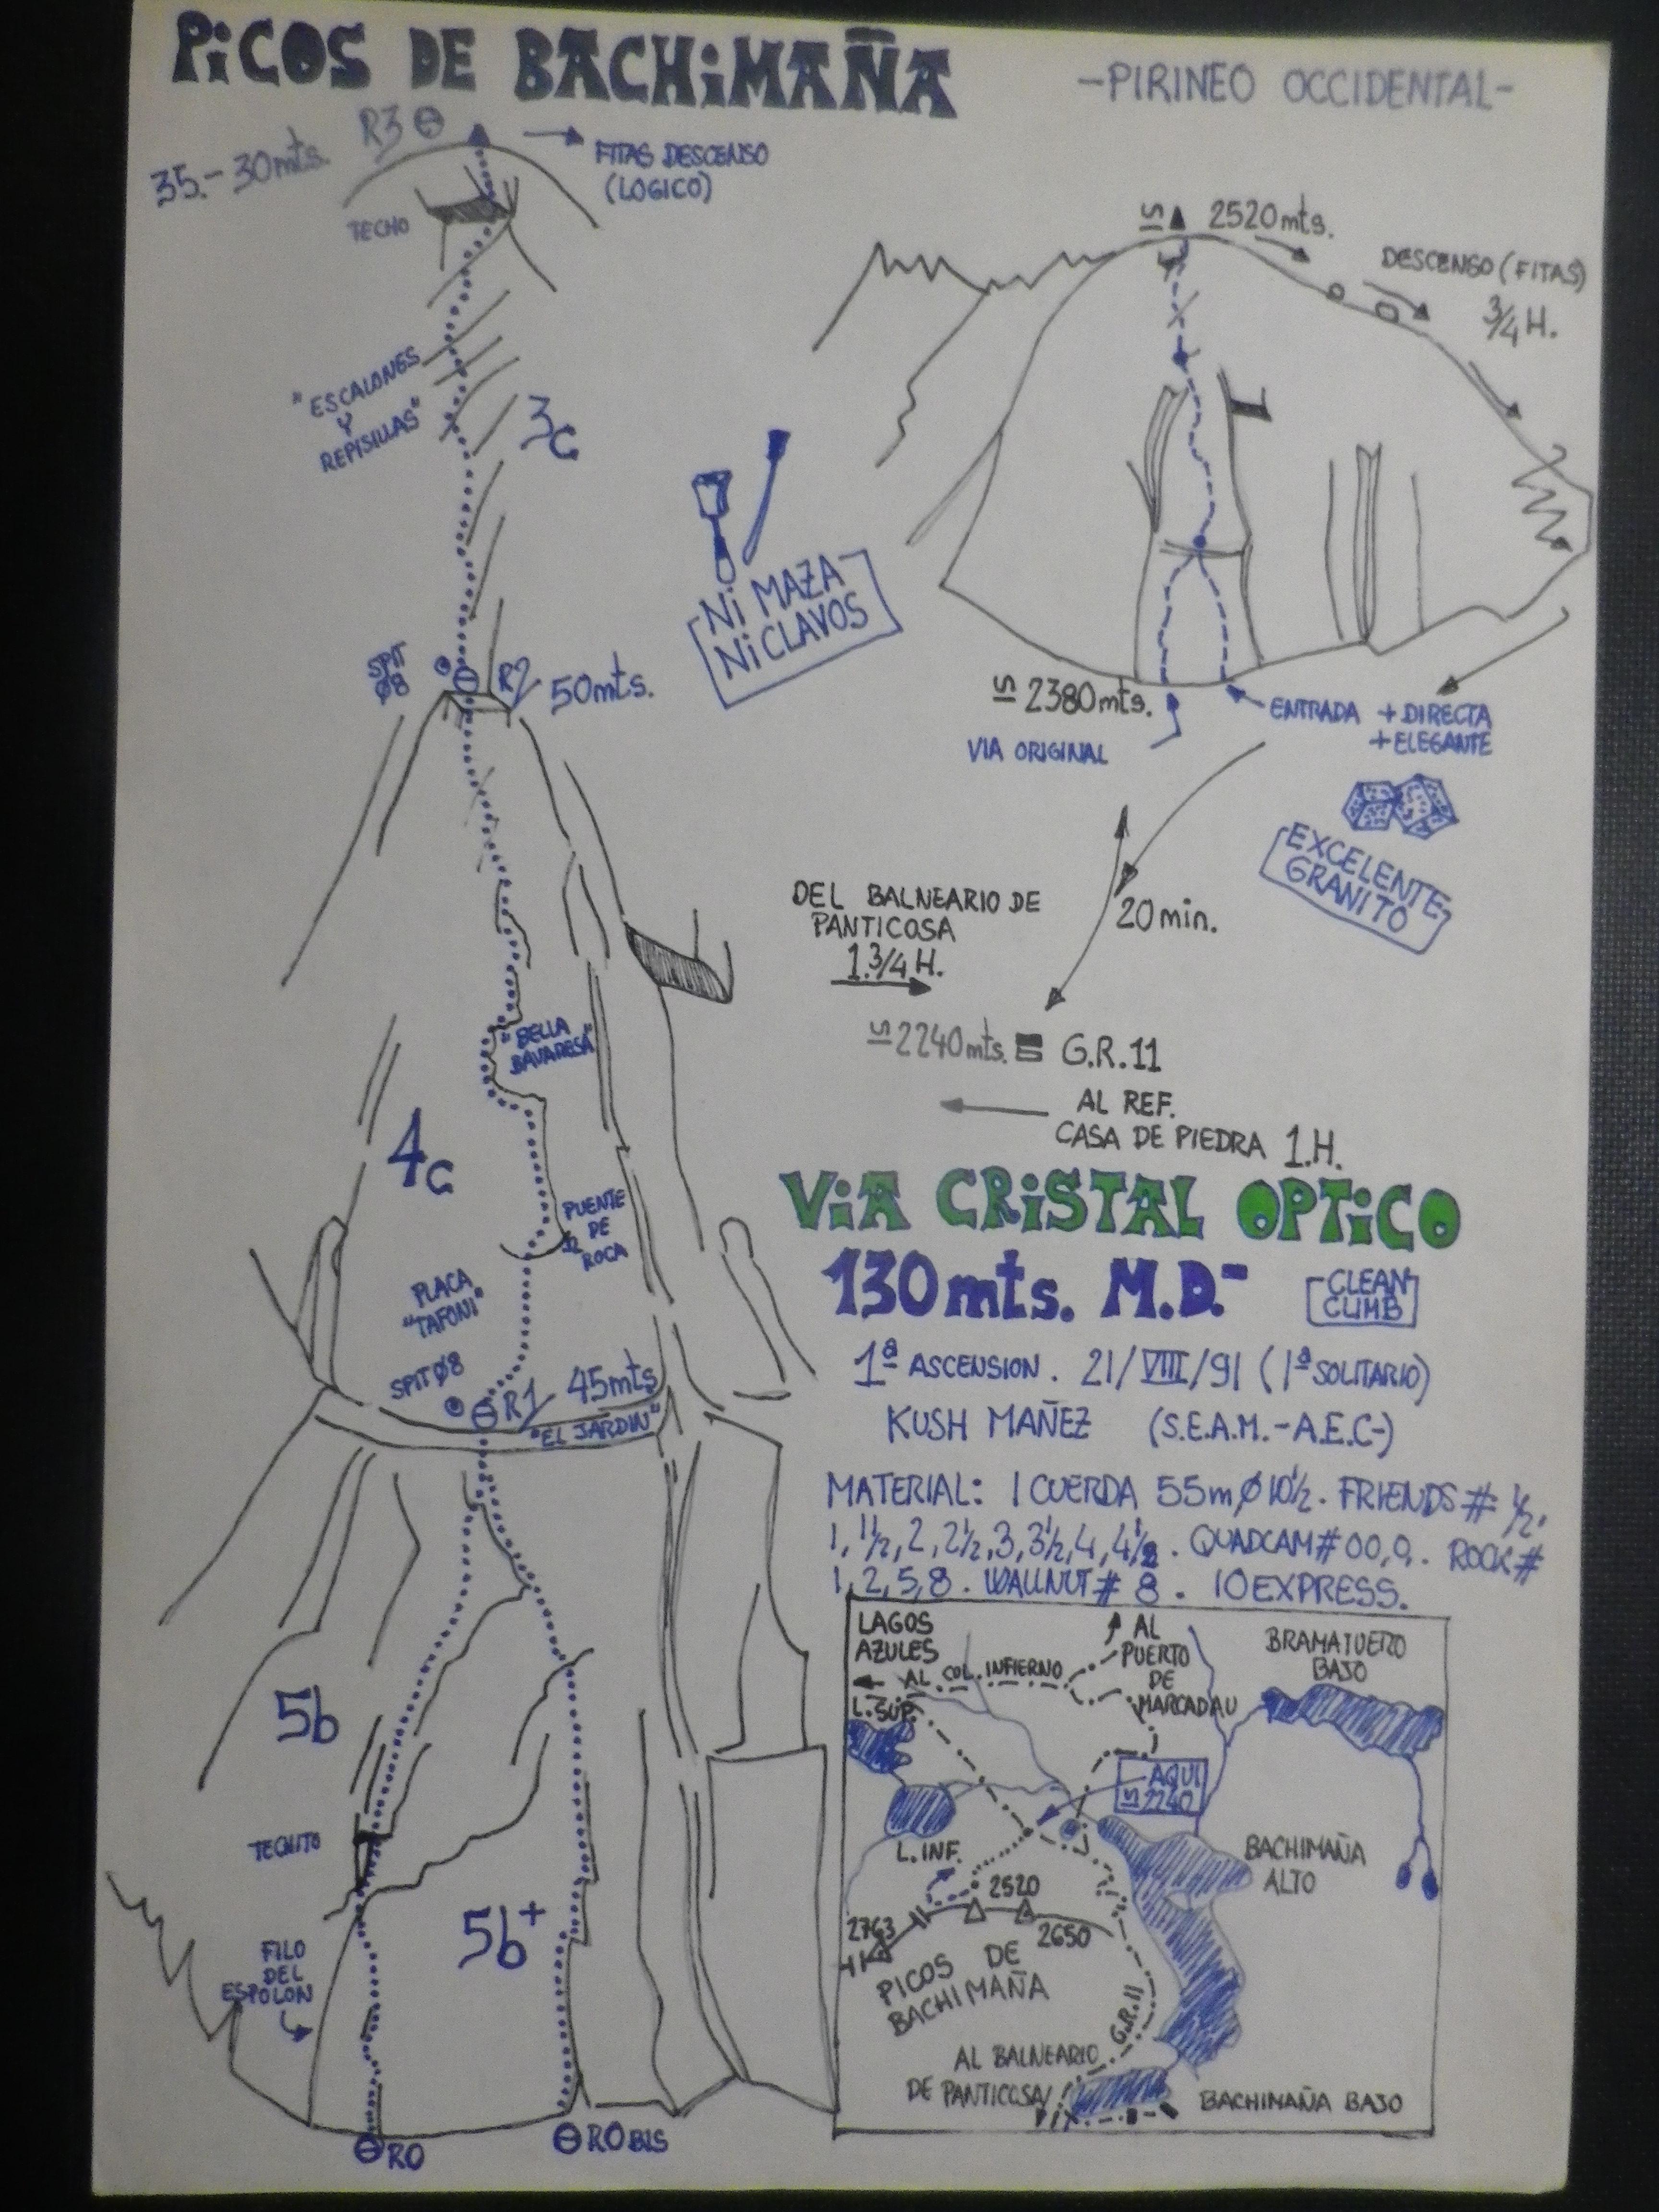 PiCOS DE BACHiMAÑA
-PIRINEO OCCIDENTAL-
R3
35.-30mts.
FITAS DESCENSO
(LOGICO)
TECHO
"ESCALONES
Y
REPISILLAS"
3c
SPIT
Ø8
R2
50mts.
"BELLA
BAVARESA"
4c
PUENTE
DE
ROCA
PLACA
"TAFONI"
SPIT Ø8
R1
45mts
"EL JARDIN"
5b
TECHITO
5b+
FILO
DEL
ESPOLON
RO
RO BIS
≃ 2520mts.
DESCENSO (FITAS)
3/4 H.
Ni MAZA
Ni CLAVOS
≃ 2380mts.
VIA ORIGINAL
ENTRADA +DIRECTA
+ELEGANTE
EXCELENTE
GRANITO
DEL BALNEARIO DE
PANTICOSA
1.3/4 H.
20min.
≃2240mts.
G.R.11
AL REF.
CASA DE PIEDRA 1.H.
ViA CRiSTAL OPTiCO
130mts. M.D.-
CLEAN
CLIMB
1ª ASCENSION. 21/VIII/91 (1ª SOLITARIO)
KUSH MAÑEZ (S.E.A.M.-A.E.C-)
MATERIAL: 1 CUERDA 55m Ø 10½. FRIENDS # ½.
1, 1½, 2, 2½, 3, 3½, 4, 4½. QUADCAM # 00, 0,. ROCK #
1, 2, 5, 8. WALLNUT # 8. 10 EXPRESS.
LAGOS
AZULES
AL COL. INFIERNO
AL
PUERTO
DE
MARCADAU
BRAMATUERO
BAJO
L. SUP.
AQUI
≃2240
L. INF.
BACHIMAÑA
ALTO
2520
2763
2650
PICOS DE
BACHIMAÑA
G.R.11
AL BALNEARIO
DE PANTICOSA
BACHIMAÑA BAJO